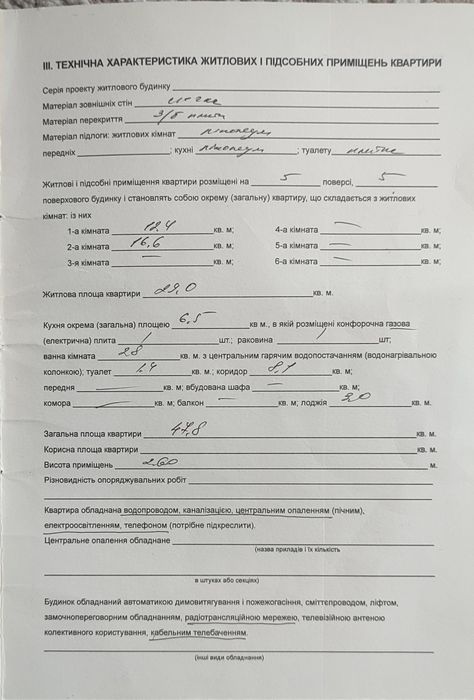 III. ТЕХНІЧНА ХАРАКТЕРИСТИКА ЖИТЛОВИХ І ПІДСОБНИХ ПРИМІЩЕНЬ КВАРТИРИ
Серія проекту житлового будинку
Матеріал зовнішніх стін
Матеріал перекриття з/б плити
Матеріал підлоги: житлових кімнат лінолеум
передніх ; кухні лінолеум ; туалету плитка
Житлові і підсобні приміщення квартири розміщені на 5 поверсі, 5
поверхового будинку і становлять собою окрему (загальну) квартиру, що складається з житлових
кімнат: із них
1-а кімната 12,4 кв. м; 4-а кімната — кв. м;
2-а кімната 16,6 кв. м; 5-а кімната — кв. м;
3-я кімната — кв. м; 6-а кімната — кв. м;
Житлова площа квартири 29,0 кв. м.
Кухня окрема (загальна) площею 6,5 кв м., в якій розміщені конфорочна газова
(електрична) плита 1 шт.; раковина 1 шт;
ванна кімната 2,8 кв. м. з центральним гарячим водопостачанням (водонагрівальною
колонкою); туалет 1,4 кв. м.; коридор 8,1 кв. м;
передня — кв. м; вбудована шафа — кв. м;
комора — кв. м; балкон — кв. м; лоджія 2,0 кв. м.
Загальна площа квартири 47,8 кв. м.
Корисна площа квартири кв. м.
Висота приміщень 2.60 м.
Різновидність опоряджувальних робіт
Квартира обладнана водопроводом, каналізацією, центральним опаленням (пічним),
електроосвітленням, телефоном (потрібне підкреслити).
Центральне опалення обладнане
(назва приладів і їх кількість
в штуках або секціях)
Будинок обладнаний автоматикою димовитягування і пожежогасіння, сміттєпроводом, ліфтом,
замочнопереговорним обладнанням, радіотрансляційною мережею, телевізійною антеною
колективного користування, кабельним телебаченням.
(інші види обладнання)